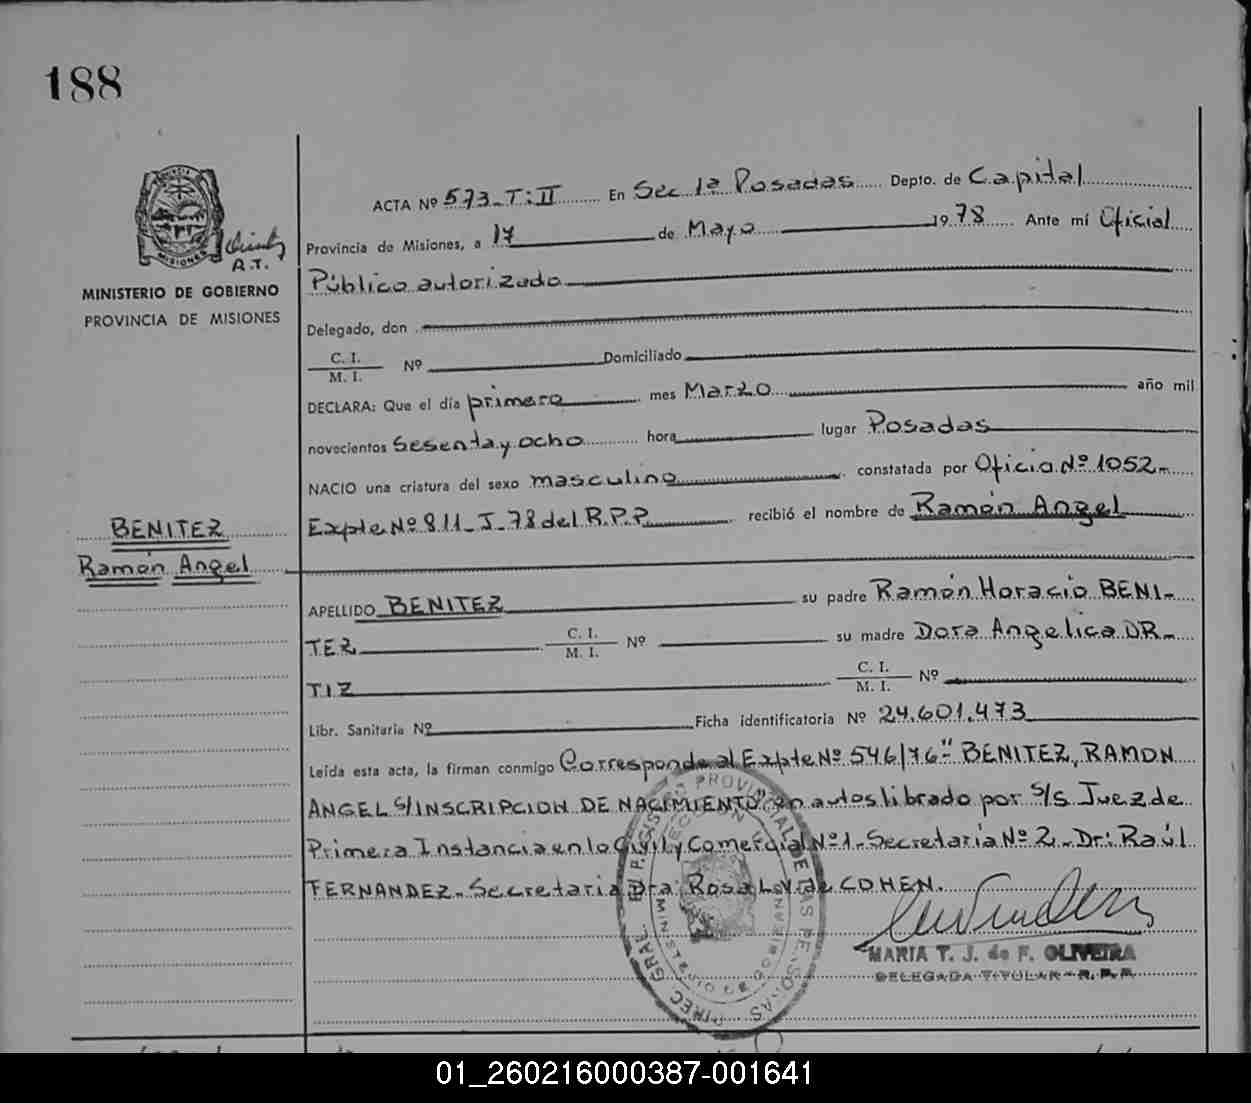 188
MISIONES
A.T.
MINISTERIO DE GOBIERNO
PROVINCIA DE MISIONES
BENITEZ
Ramón Angel
ACTA Nº 573_T:II En Sec 1ª Posadas Depto. de Capital
Provincia de Misiones, a 17 de Mayo 1978 Ante mí Oficial
Público autorizado
Delegado, don
C. I.
M. I. Nº Domiciliado
DECLARA: Que el día primero mes Marzo año mil
novecientos sesenta y ocho hora lugar Posadas
NACIO una criatura del sexo masculino constatada por Oficio Nº 1052_
Expte Nº 811_J_78 del R.P.P. recibió el nombre de Ramón Angel
APELLIDO BENITEZ su padre Ramón Horacio BENI_
TEZ C. I. M. I. Nº su madre Dora Angelica OR_
TIZ C. I. M. I. Nº
Libr. Sanitaria Nº Ficha identificatoria Nº 24.601.473
Leída esta acta, la firman conmigo Corresponde al Expte Nº 546/76 " BENITEZ, RAMON
ANGEL S/INSCRIPCION DE NACIMIENTO" en autos librado por S/S Juez de
Primera Instancia en lo Civil y Comercial Nº 1_ Secretaria Nº 2_ Dr: Raúl
FERNANDEZ_ Secretaria Dra: Rosa L. de COHEN.
MARIA T. J. de F. OLIVEIRA
DELEGADA TITULAR - R. P. P.
DIREC. GRAL. DEL REGISTRO PROVINCIAL DE LAS PERSONAS
MINISTERIO DE GOBIERNO
01_260216000387-001641